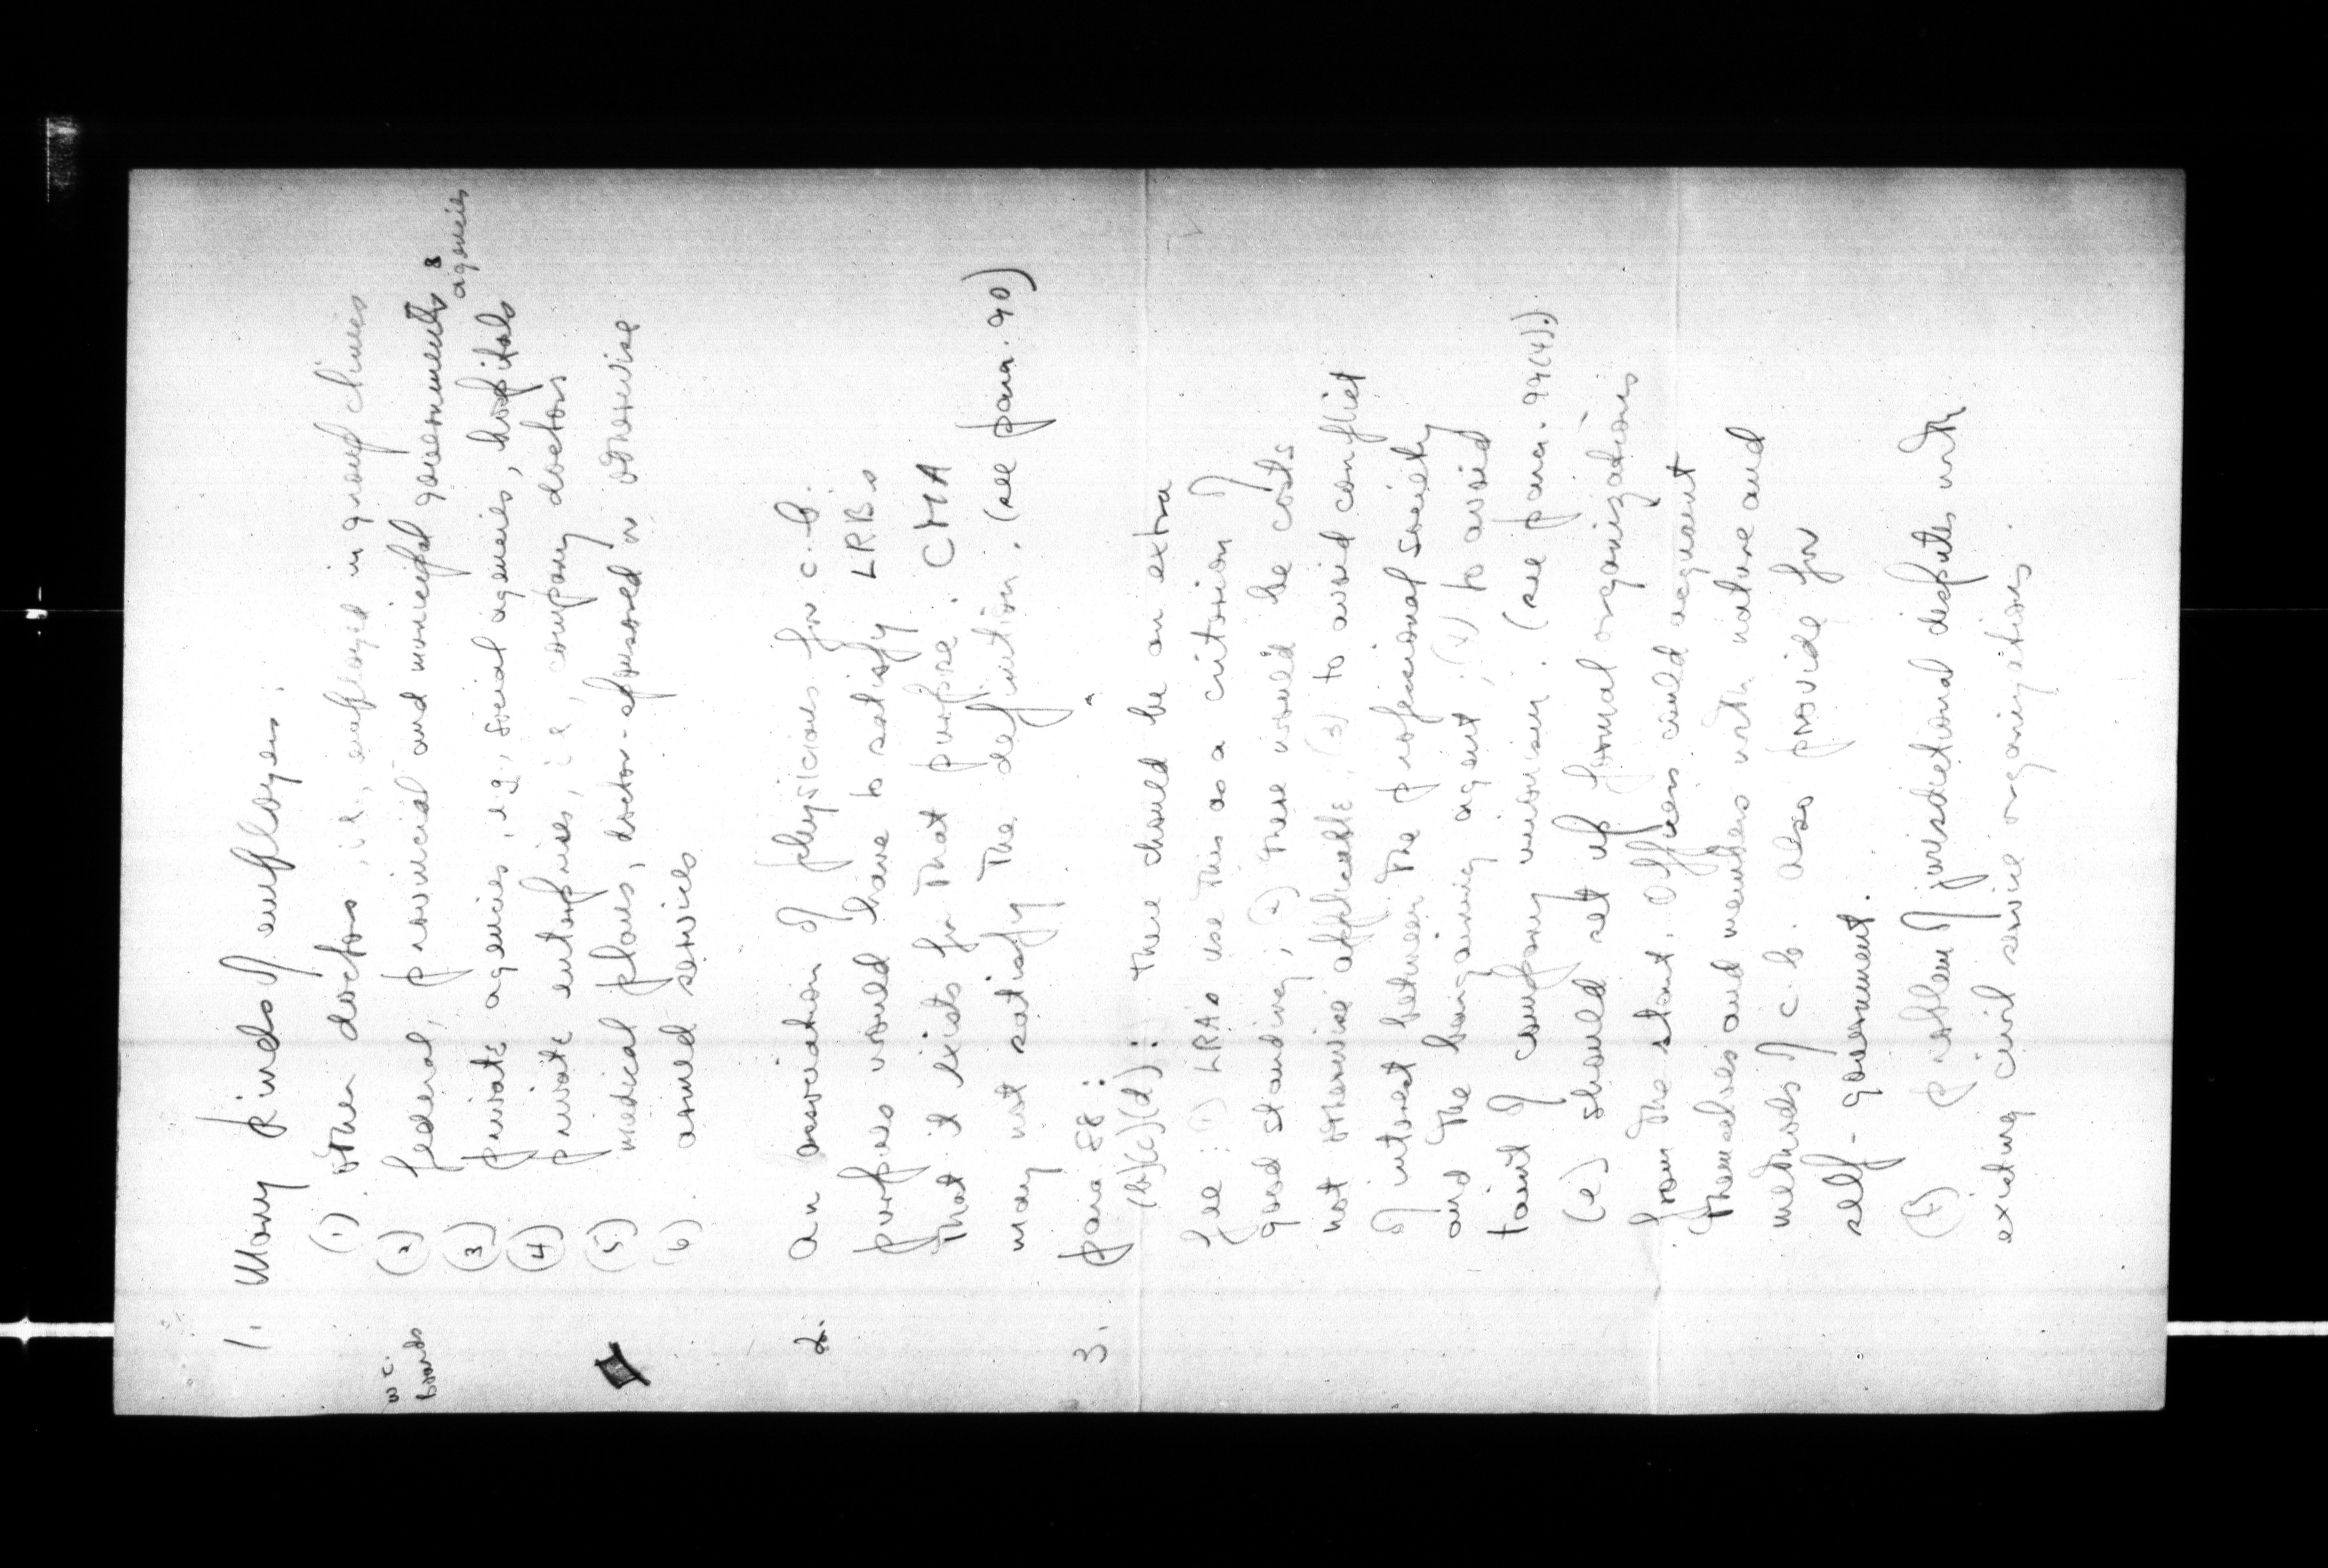 1. Many kinds of employers:
(1) other doctors, i.e., employed in group clinics
(2) federal, provincial and municipal governments & agencies
w c. boards
(3) private agencies, e.g., social agencies, hospitals
(4) private enterprises, i.e., company doctors
(5) medical plans, doctor-sponsored or otherwise
(6) armed services
2. An association of physicians for c.b.
purposes would have to satisfy LRBs
that it exists for that purpose. CMA
may not satisfy the definition. (see para. 90)
3. para 88:
(b)(c)(d): there should be an extra
fee: (1) LRAs use this as a criterion of
good standing; (2) there would be costs
not otherwise applicable; (3) to avoid conflict
of interest between the professional society
and the bargaining agent; (4) to avoid
taint of company unionism. (see para. 94(4).)
(e) should set up formal organizations
from the start. Officers could acquaint
themselves and members with nature and
methods of c.b. also provide for
self-government.
(f) problem of jurisdictional disputes with
existing civil service organizations.